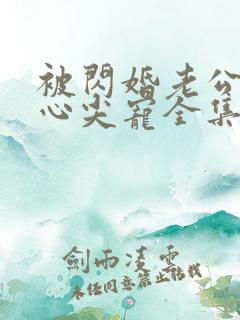 被閃婚老公
心尖寵全集
劍雨凌雲
未经同意禁止转载